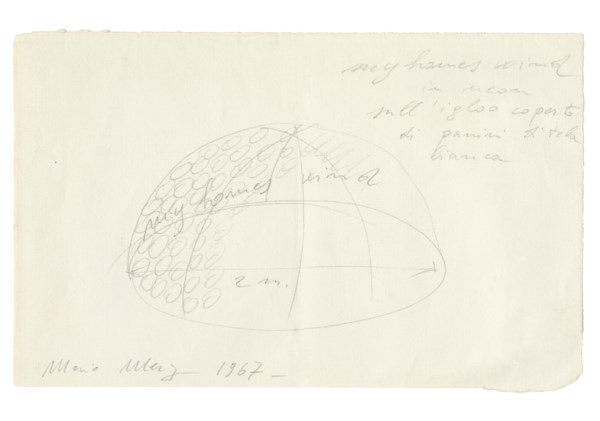 my homes wind
in neon
sull'igloo coperto
di panini di tela
bianca
my homes wind
2 m.
Mario Merz 1967